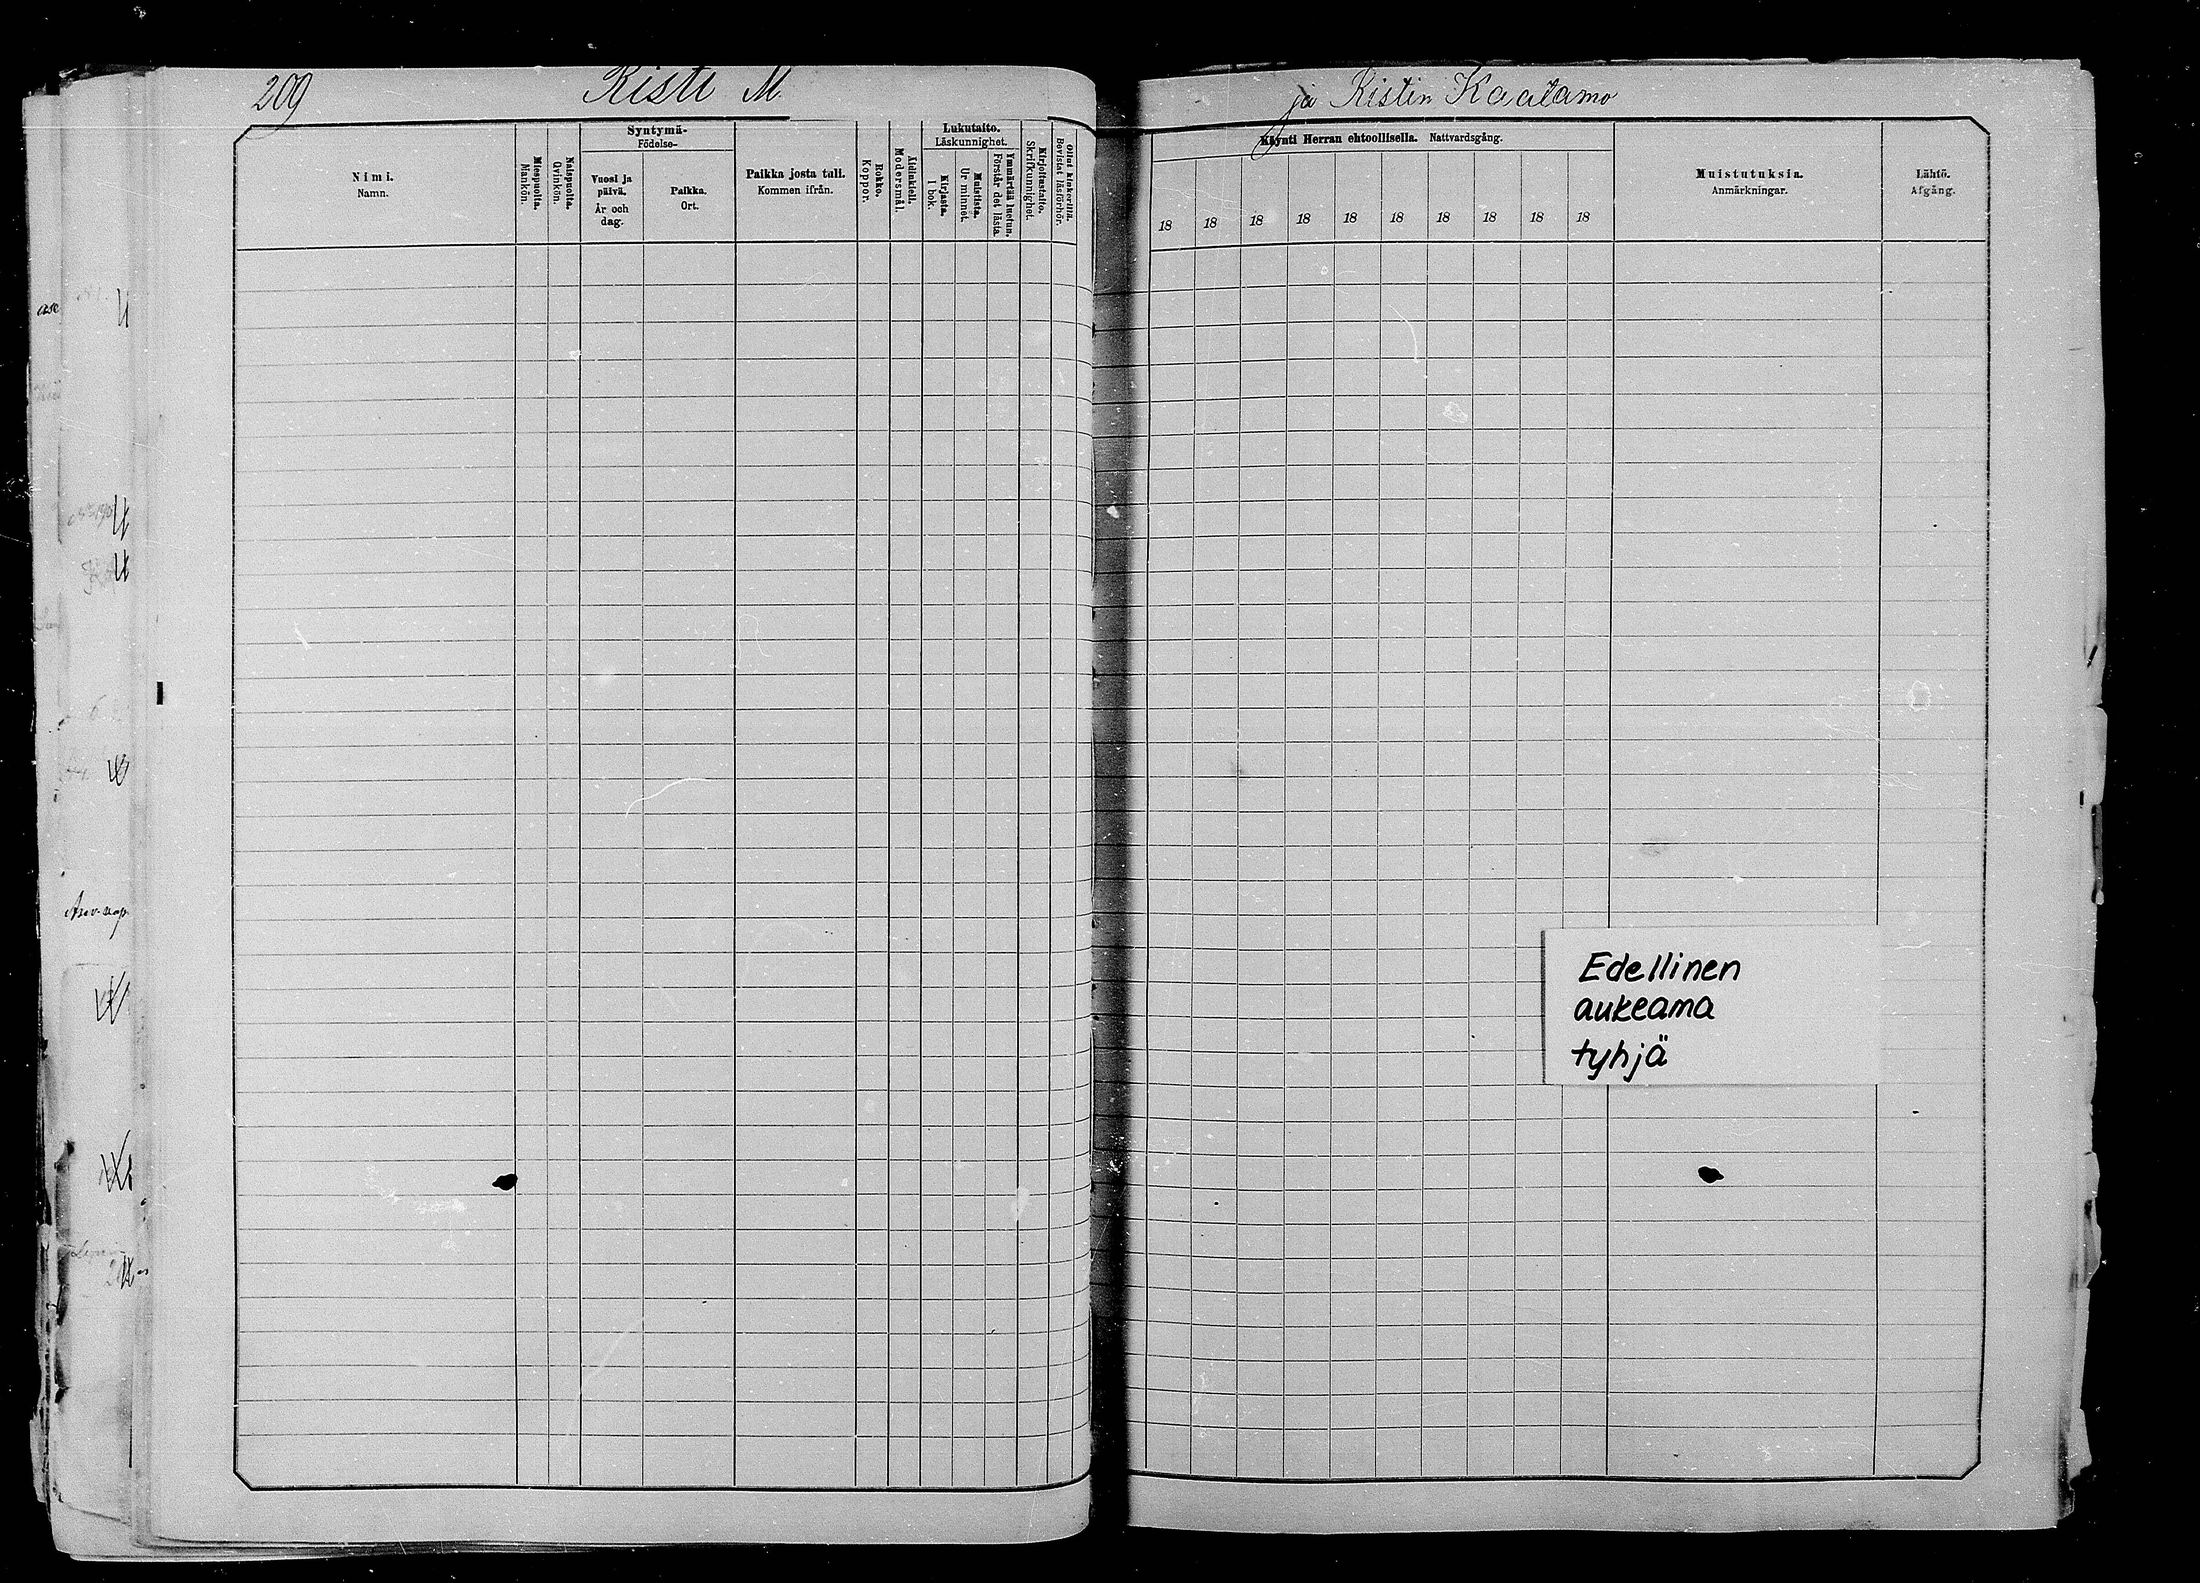 209 Risti M.
ja Ristin Kaalamo
Nimi.
Namn.
Miespuolta.
Mankön.
Naispuolta.
Qvinkön.
Syntymä-
Födelse-
Vuosi ja
päivä.
År och
dag.
Paikka.
Ort.
Paikka josta tuli.
Kommen ifrån.
Rokko.
Koppor.
Äidinkieli.
Modersmål.
Lukutaito.
Läskunnighet.
Kirjasta.
I bok.
Muistista.
Ur minnet.
Ymmärtää luetun.
Förstår det lästa.
Kirjoitustaito.
Skrifkunnighet.
Ollut kinkerillä.
Bevistat läsförhör.
Käynti Herran ehtoollisella. Nattvardsgång.
18 18 18 18 18 18 18 18 18 18
Muistutuksia.
Anmärkningar.
Lähtö.
Afgång.
Edellinen
aukeama
tyhjä